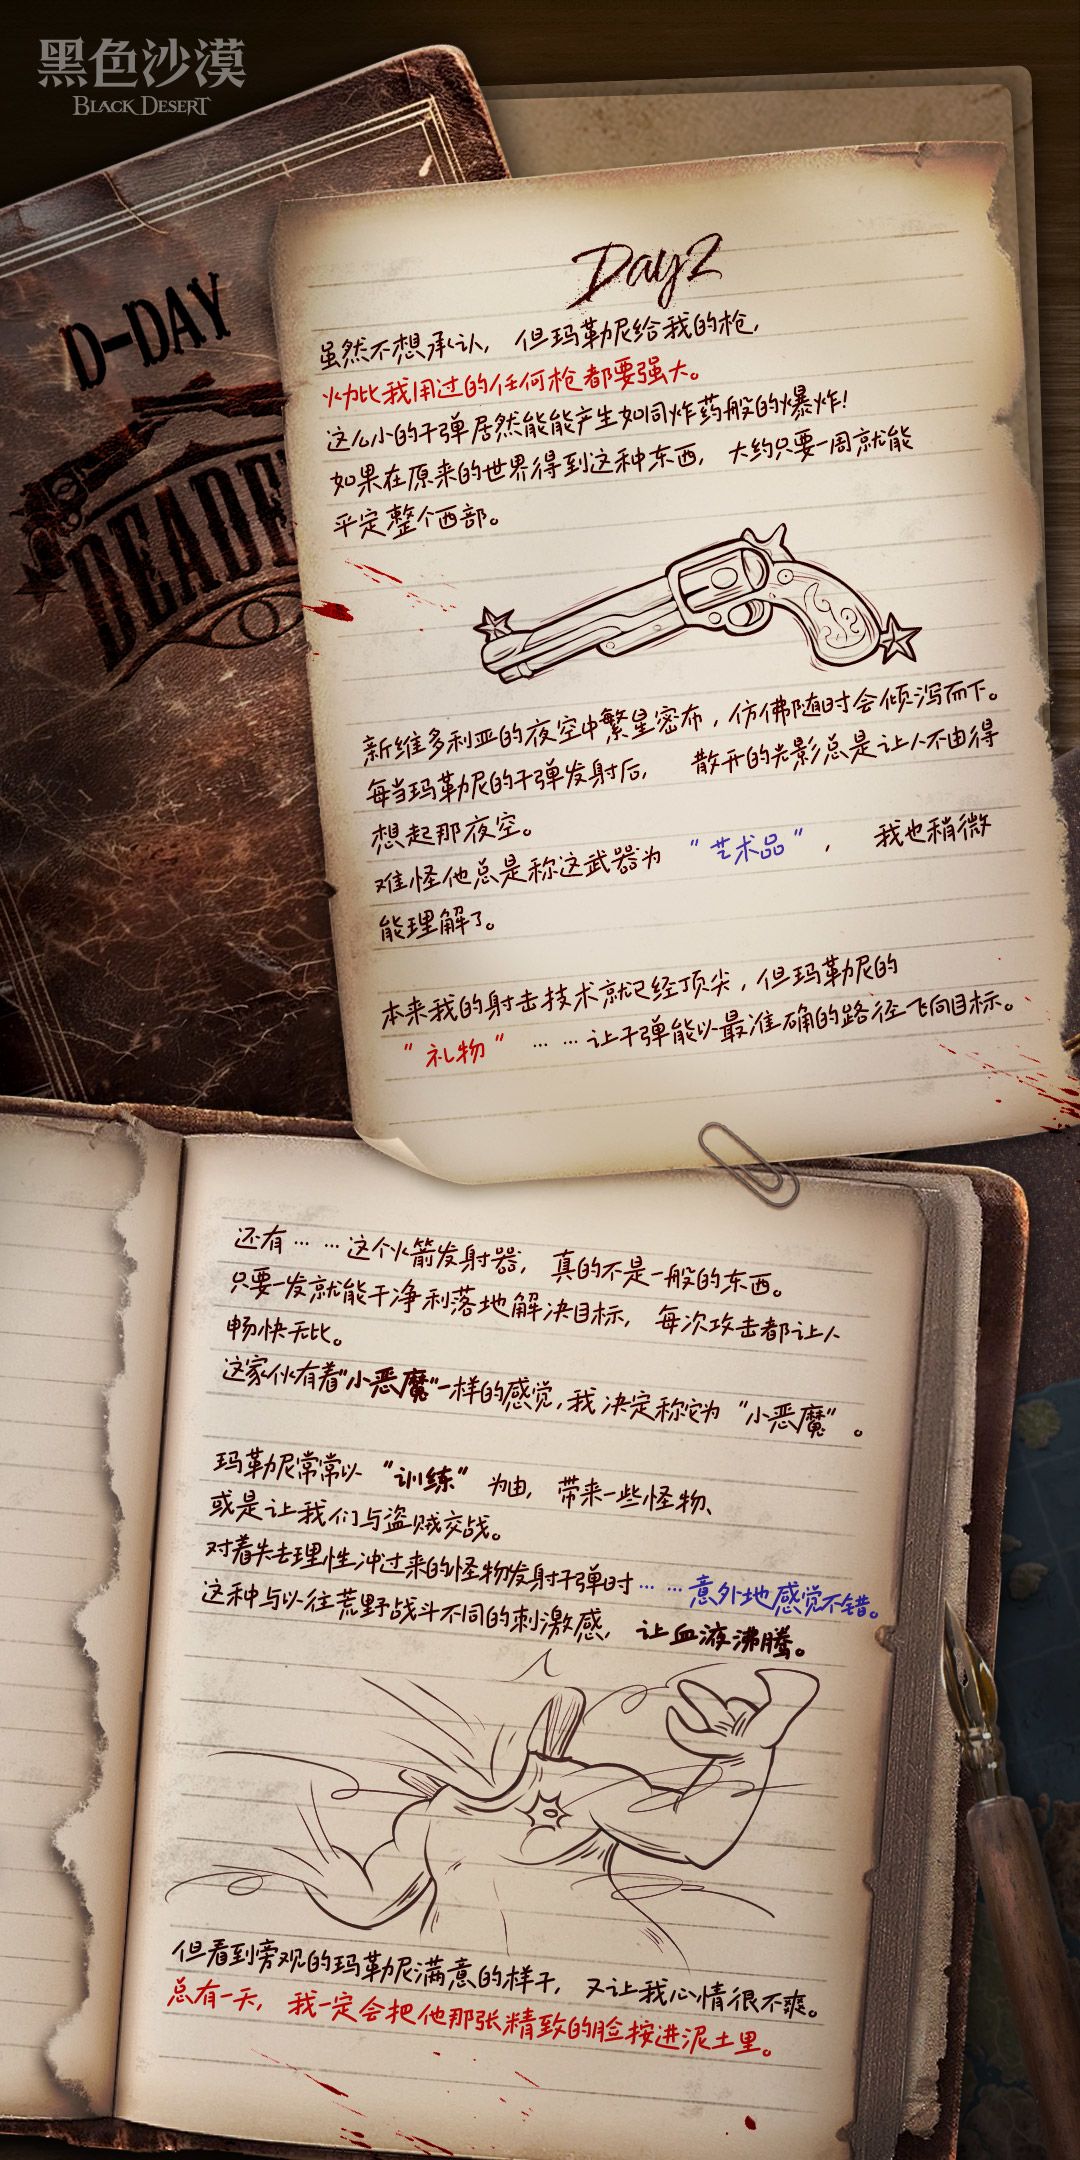 黑色沙漠
BLACK DESERT
D-DAY
DEADE
Day2
虽然不想承认，但玛勒尼给我的枪，
火力比我用过的任何枪都要强大。
这么小的子弹居然能能产生如同炸药般的爆炸！
如果在原来的世界得到这种东西，大约只要一周就能
平定整个西部。
新维多利亚的夜空中繁星密布，仿佛随时会倾泻而下。
每当玛勒尼的子弹发射后，散开的光影总是让人不由得
想起那夜空。
难怪他总是称这武器为“艺术品”，我也稍微
能理解了。
本来我的射击技术就已经顶尖，但玛勒尼的
“礼物”……让子弹能以最准确的路径飞向目标。
还有……这个火箭发射器，真的不是一般的东西。
只要一发就能干净利落地解决目标，每次攻击都让人
畅快无比。
这家伙有着“小恶魔”一样的感觉，我决定称它为“小恶魔”。
玛勒尼常常以“训练”为由，带来一些怪物、
或是让我们与盗贼交战。
对着失去理性冲过来的怪物发射子弹时……意外地感觉不错。
这种与以往荒野战斗不同的刺激感，让血液沸腾。
但看到旁观的玛勒尼满意的样子，又让我心情很不爽。
总有一天，我一定会把他那张精致的脸按进泥土里。